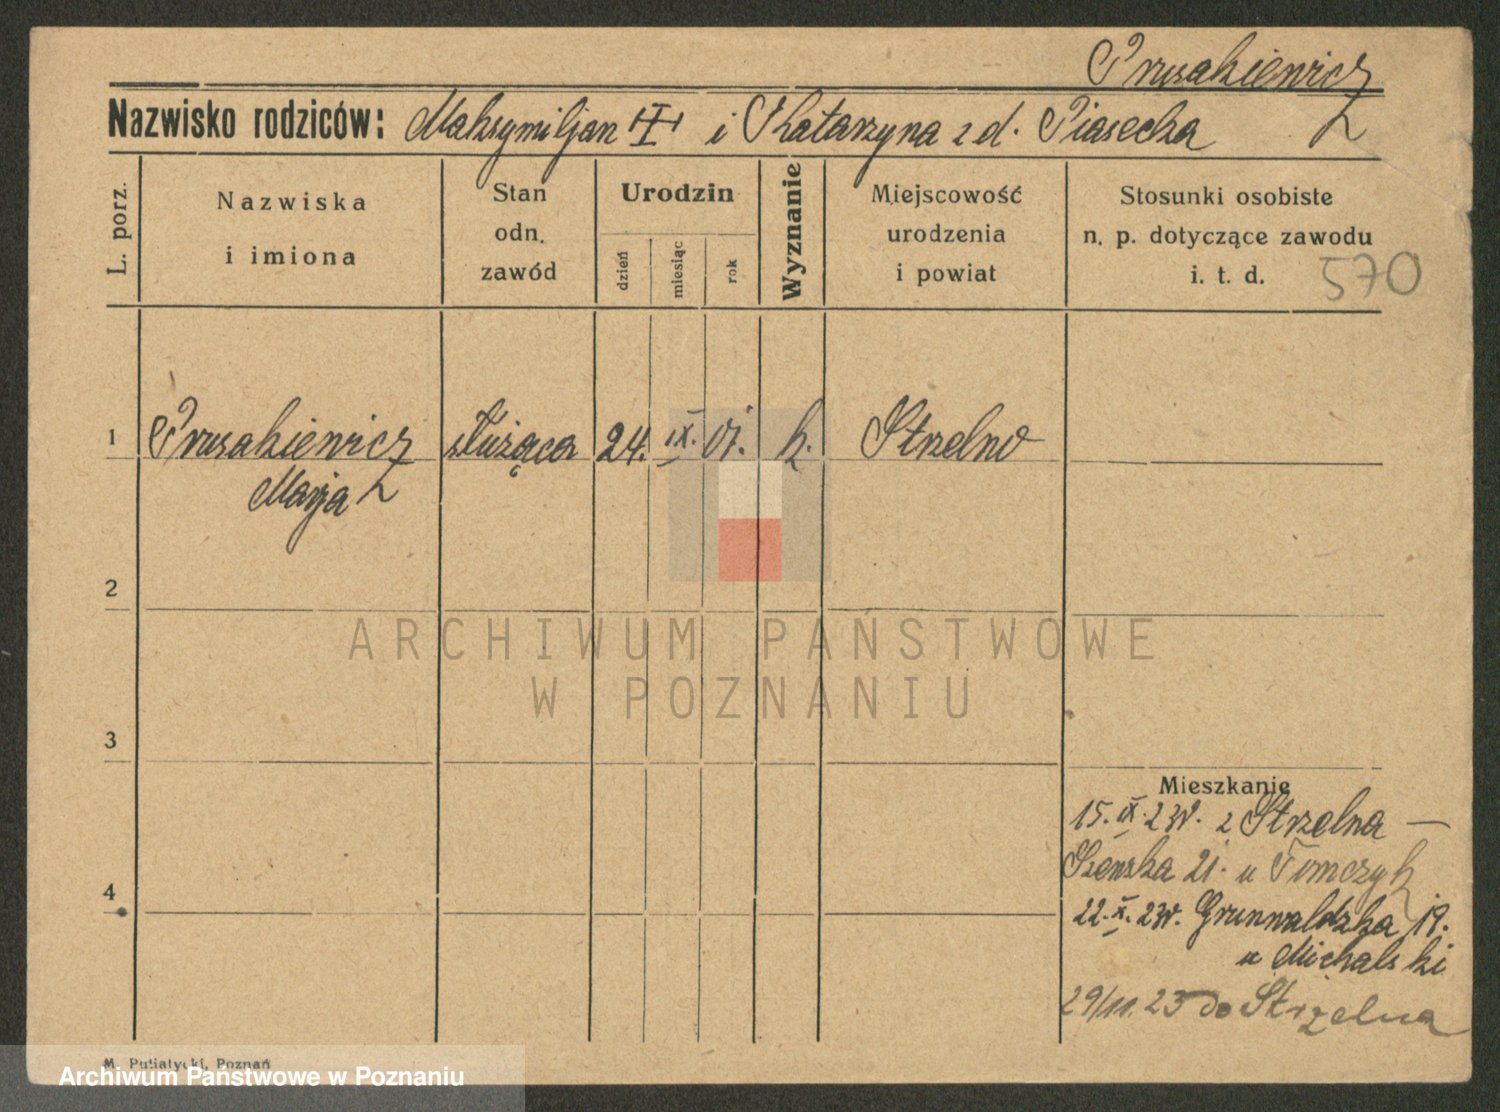 Prusakiewicz
Nazwisko rodziców: Maksymiljan i Katarzyna z d. Piasecka
L. porz.
Nazwiska
i imiona
Stan
odn.
zawód
Urodzin
dzień
miesiąc
rok
Wyznanie
Miejscowość
urodzenia
i powiat
Stosunki osobiste
n. p. dotyczące zawodu
i. t. d.
570
1 Prusakiewicz służąca 24. IX. 01. k. Strzelno
Marja
2
ARCHIWUM PAŃSTWOWE
W POZNANIU
3
Mieszkanie
15. IX. 23r. z Strzelna —
21. u Tomczyk
4
22. X. 23r. Grunwaldzka 19.
u Michalski
29/11. 23 do Strzelna
M. Putiatycki, Poznań
Archiwum Państwowe w Poznaniu